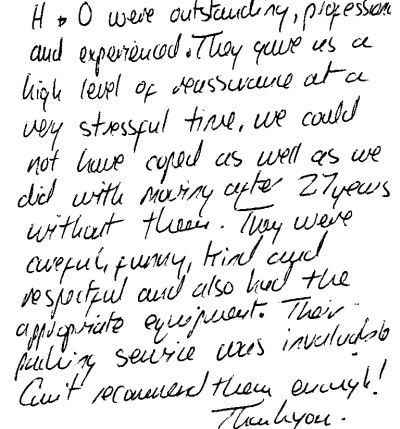 H & O were outstanding, profession
and experienced. They gave us a
high level of reassurance at a
very stressful time, we could
not have coped as well as we
did with moving after 27 years
without them. They were
careful, funny, kind and
respectful and also had the
appropriate equipment. Their
packing service was invaluable
Can't recommend them enough!
Thankyou.